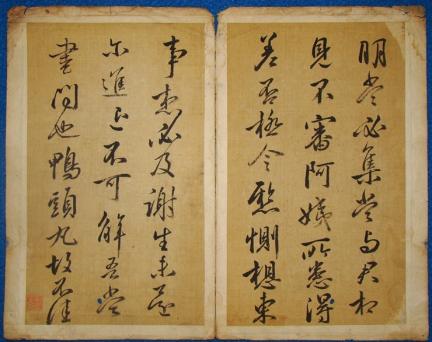 明當必集當与君相
見不審阿姨所患得
差否極令懸惻想東
事必及謝生未還
尔進不可解吾當
書問也鴨頭丸故不佳